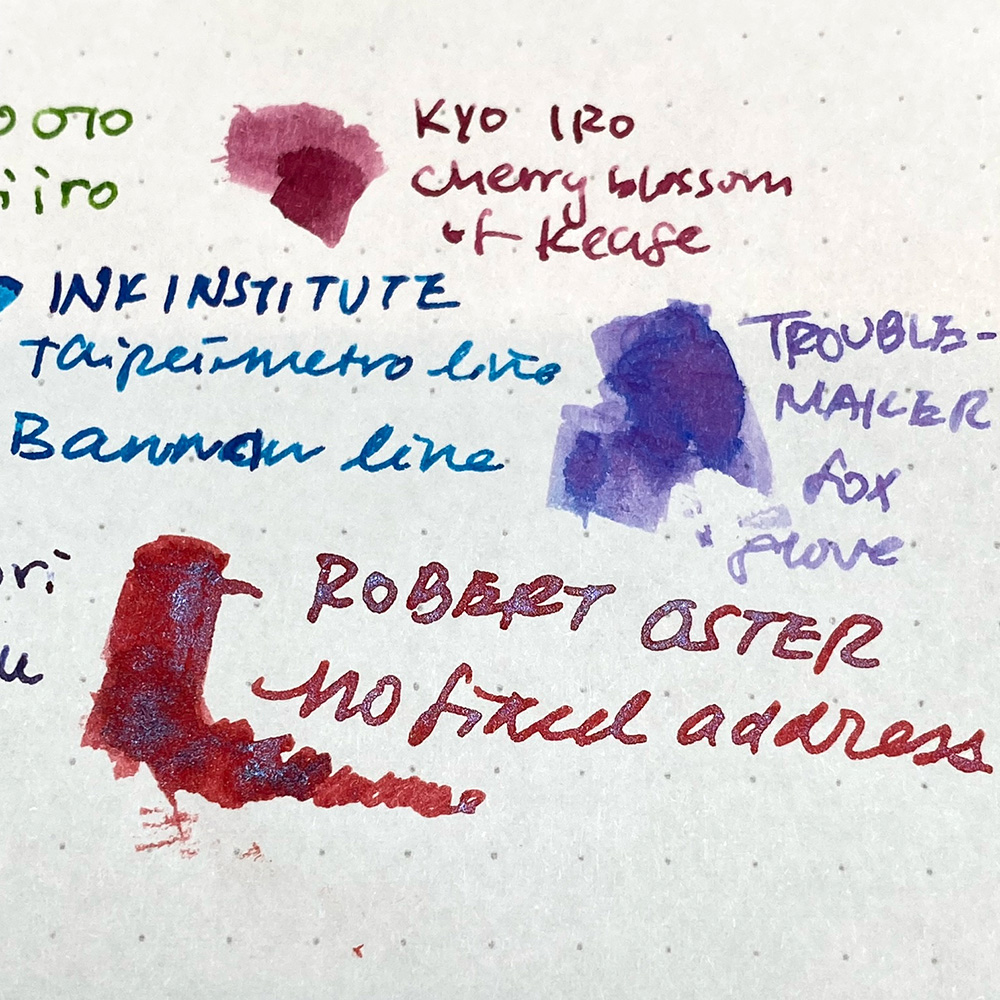 OTO
KYO IRO
iiro
cherry blossom
of Keage
INK INSTITUTE
Taipei metro line
Bannan line
TROUBLE-
MAKER
fox
grove
ori
u
ROBERT OSTER
no fixed address